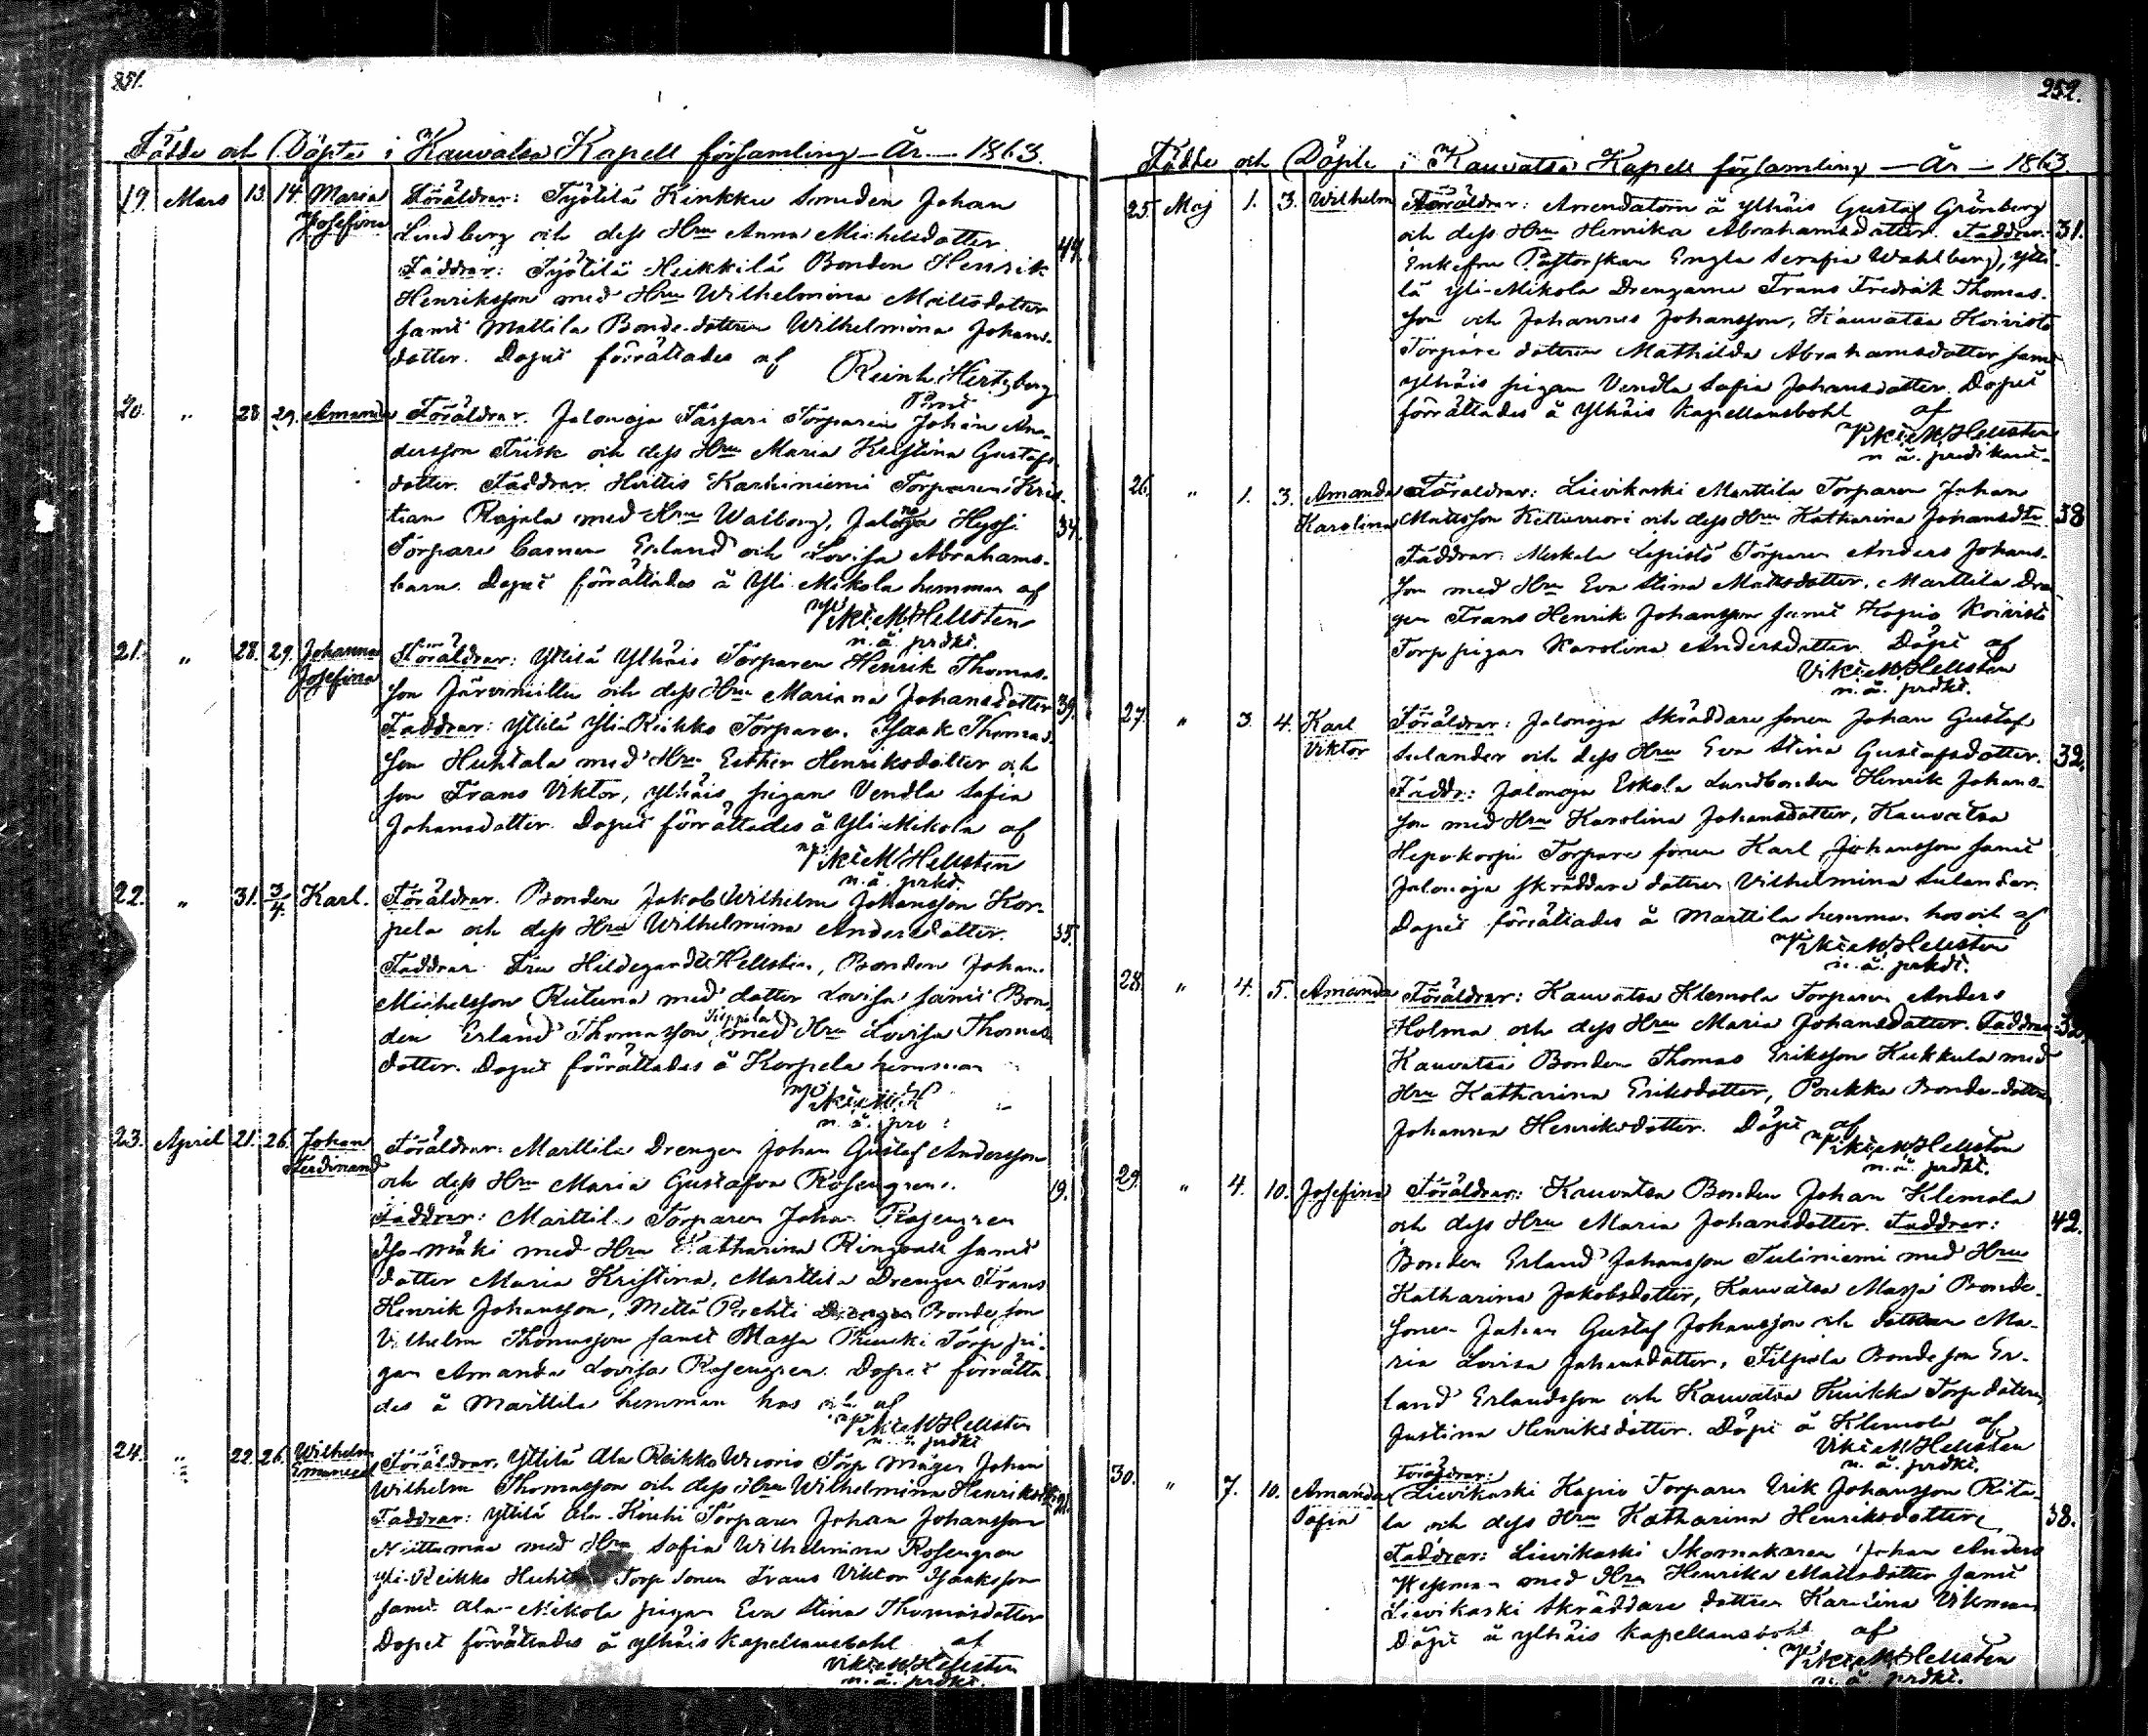 251.
Födde och Döpte i Kauvatsa Kapell församling – År – 1863.
19. Mars 13. 14. Maria Föräldrar: Työtilä Kinkku Smeden Johan
Josefina Lindberg och dess Hru Anna Michelsdotter 44.
Faddrar: Työtilä Heikkilä Bonden Henrik
Henriksson med Hru Wilhelmina Mattsdotter
samt Mattila Bonde-dottren Wilhelmina Johans-
dotter. Dopet förrättades af
Reinh. Hertzberg
20. " 28 29. Amanda Föräldrar. Jalonoja Torparen Johan An-
dersson Frisk och dess Hru Maria Kristina Gustafs-
dotter. Faddrar Huittis Karhiniemi Torparen Kris-
tian Rajala med Hru Walborg, Jalonoja Hyssi 34.
Torpare barnen Erland och Lovisa Abrahams-
barn. Dopet förrättades å Yli Mikola hemman af
Vikt. M. Hellsten
n. å. prdkt.
21. " 28. 29. Johanna Föräldrar: Yttilä Ylhäis Torparen Henrik Thomas-
Josefina son och dess Hru Mariana Johansdotter 39.
Faddrar: Yttilä Yli-Reikko Torparen Isaak Thomas-
son Huhtala med Hru Esther Henriksdotter och
son Frans Viktor, Ylhäis pigan Vendla Sofia
Johansdotter. Dopet förrättades å Yli-Mikola af
Vikt. M. Hellsten
n. å. prkd.
22. " 31. 3/4. Karl. Föräldrar. Bonden Jakob Wilhelm Johansson Kor-
pela och dess Hru Wilhelmina Andersdotter. 35.
Faddrar Fru Hildegard Hellsten, Bonden Johan
Michelsson Rutuna med dotter Lovisa samt Bon-
den Erland Thomasson Seppälä med Hru Lovisa Thomas-
dotter. Dopet förrättades å Korpela hemman
n. å. prd
23. April 21. 26. Johan Föräldrar: Marttila Drengen Johan Gustaf Andersson
Ferdinand och dess Hru Maria Gustafva Rosengren. 19.
Faddrar: Marttila Torparen Johan Rosengren
Iso-mäki med Hru Katharina Ringvall samt
dotter Maria Kristina, Marttila Drengen Frans
Henrik Johansson, Mettä Pertti Bondeson
Vilhelm Thomasson samt Massa Torp pi-
gan Amanda Lovisa Rosengren. Dopet förrätta-
des å Marttila hemman hos och af
Vikt. M. Hellsten
n. å. prdkt
24. " 22. 26. Wilhelm Föräldrar. Yttilä Ala Reikko Wuorio Torp mågen Johan
Emanuel Wilhelm Thomasson och dess Hru Wilhelmina Henriksdtr 21.
Faddrar: Yttilä Ala-Kouhi Torparen Johan Johansson
Niittumaa med Hru Sofia Wilhelmina Rosengren
Yli-Reikko Torp sonen Frans Viktor Isaaksson
samt Ala-Mikola pigan Eva Stina Thomasdotter
Dopet förrättades å Ylhäis kapellansbohl af
Vikt. M. Hellsten
n. å. prdkt.
252.
Födde och Döpte i Kauvatsa Kapell församling – År – 1863.
25. Maj 1. 3. Wilhelm Föräldrar: Arrendatorn å Ylhäis Gustaf Grönberg
och dess Hru Henrika Abrahamsdotter. Faddrar: 31.
Enkefru Pastorskan Engla Serafia Wahlberg, Ytti-
lä Yli-Mikola Drengarne Frans Fredrik Thomas-
son och Johannes Johansson, Kauvatsa Koivisto
Torpare dottren Mathilda Abrahamsdotter samt
Ylhäis pigan Vendla Sofia Johansdotter. Dopet
förrättades å Ylhäis Kapellansbohl af
Vikt. M. Hellsten
n. å. predikant.
26. " 1. 3. Amanda Föräldrar: Lievikoski Marttila Torparen Johan
Karolina Mattsson Kettuvuori och dess Hru Katharina Johansdtr 38
Faddrar: Meskala Lepistö Torparen Anders Johans-
son med Hru Eva Stina Mattsdotter, Marttila Dren-
gen Frans Henrik Johansson samt Kopio Koivisto
Torppigan Karolina Andersdotter. Döpt af
Vikt. M. Hellsten
n. å. prdkt.
27. " 3. 4. Karl Föräldrar: Jalonoja Skräddare sonen Johan Gustaf
Viktor Sulander och dess Hru Eva Stina Gustafsdotter. 32.
Faddr: Jalonoja Eskola Landbonden Henrik Johans-
son med Hru Karolina Johansdotter, Kauvatsa
Hepokorpi Torpare sonen Karl Johansson samt
Jalonoja skräddare dottren Vilhelmina Sulander.
Dopet förrättades å Marttila hemman hos och af
Vikt. M. Hellsten
n. å. prkdt.
28. " 4. 5. Amanda Föräldrar: Kauvatsa Klemola Torparen Anders
Holma och dess Hru Maria Johansdotter. Faddrar: 32.
Kauvatsa Bonden Thomas Eriksson Kukkula med
Hru Katharina Eriksdotter, Pukka Bonde-dottren
Johanna Henriksdotter. Döpt af
Vikt. M. Hellsten
n. å. prdkt.
29. " 4. 10. Josefina Föräldrar: Kauvatsa Bonden Johan Klemola
och dess Hru Maria Johansdotter. Faddrar: 42.
Bonden Erland Johansson Tuliniemi med Hru
Katharina Jakobsdotter, Kauvatsa Massa Bonde-
sonen Johan Gustaf Johansson och dottren Ma-
ria Lovisa Johansdotter, Filpula Bondeson Er-
land Erlandsson och Kauvatsa Kuikka Torp dottren
Justina Henriksdotter. Döpt å Klemola af
Vikt. M. Hellsten
n. å. prdkt.
30. " 7. 10. Amanda Föräldrar: Lievikoski Kopio Torparen Erik Johansson Rita-
Sofia la och dess Hru Katharina Henriksdotter 38.
Faddrar: Lievikoski Skomakaren Johan Anders
Wessman med Hru Henrika Mattsdotter samt
Lievikoski Skräddare dottren Karolina Vikman
Döpt å Ylhäis kapellansbohl af
Vikt. M. Hellsten
n. å. prdkt.